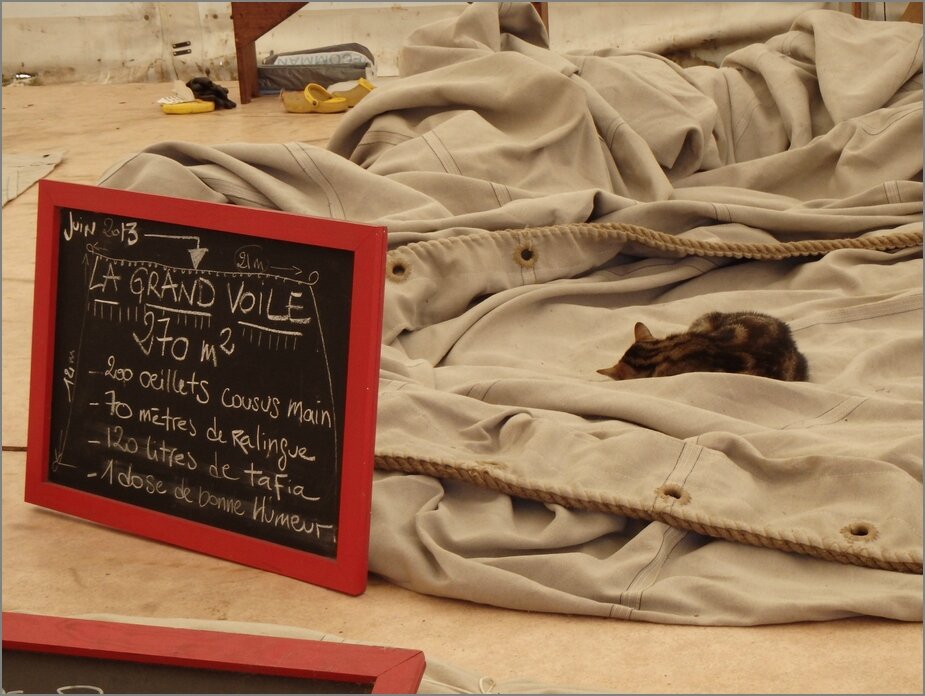 Juin 2013
21m
LA GRAND VOILE
270 m²
12 m
- 200 oeillets cousus main
- 70 mètres de Ralingue
- 120 litres de tafia
- 1 dose de bonne Humeur